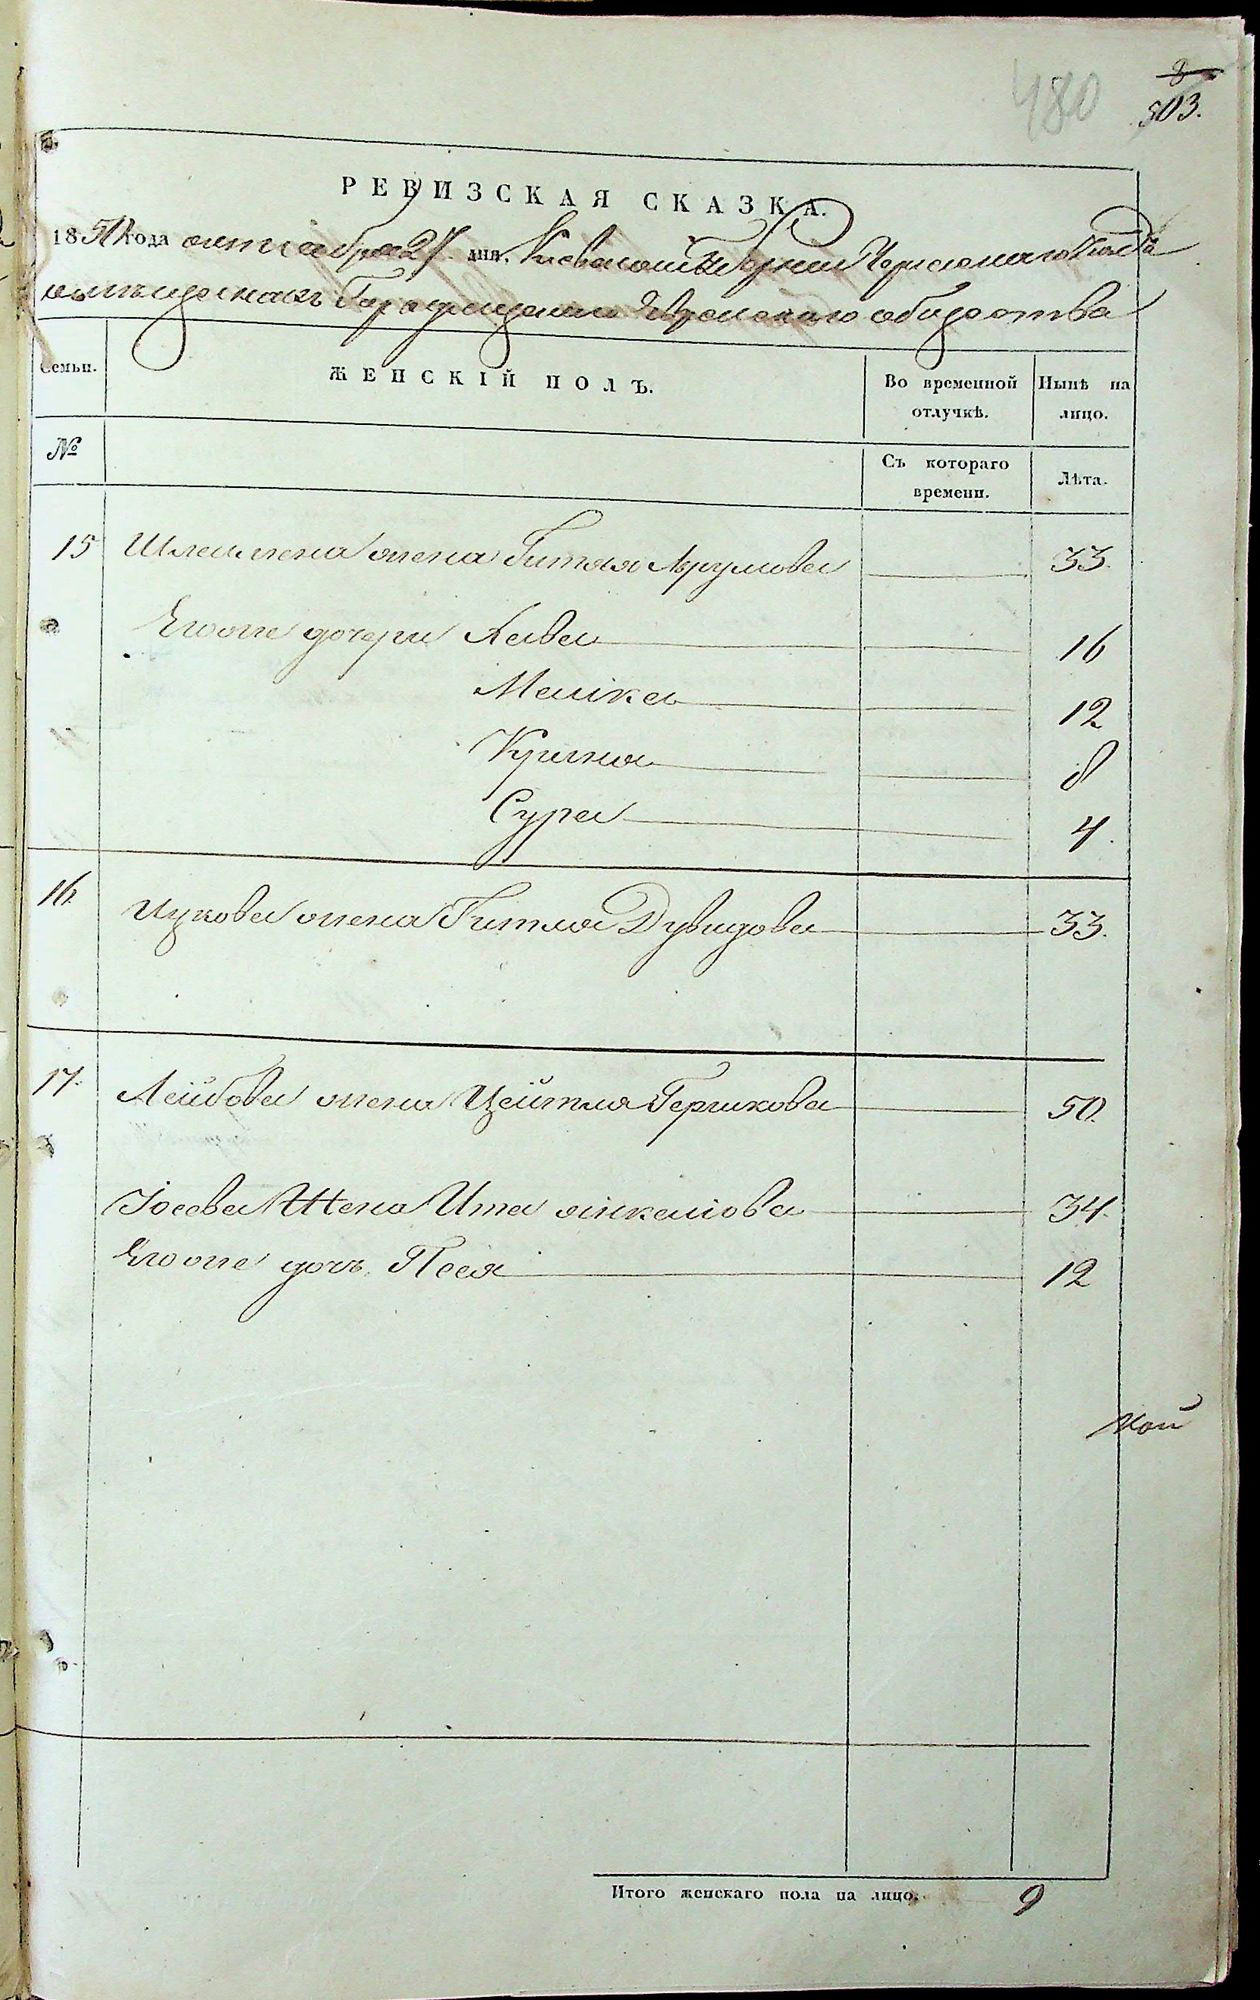 480
8
503.
РЕВИЗСКАЯ СКАЗКА.
1851 года октября 27 дня. Киевской Губернии Черкаскаго
Городищенскаго Еврейскаго общества
Семьи.
ЖЕНСКІЙ ПОЛЪ.
Во временной отлучкѣ.
Нынѣ на лицо.
№
Съ котораго времени.
Лѣта.
15 Шлемына жена Гитля Срулова 33.
Егоже дочери Хава 16
Малка 12
Крыня 8
Сура 4.
16. Ицкова жена Гитля Дувидова 33.
17. Лейбова жена Цейтля Гершкова 50.
Іосева Жена Ита Янкелiова 34.
Егоже дочь Песя 12
Итого женскаго пола на лицо. 9